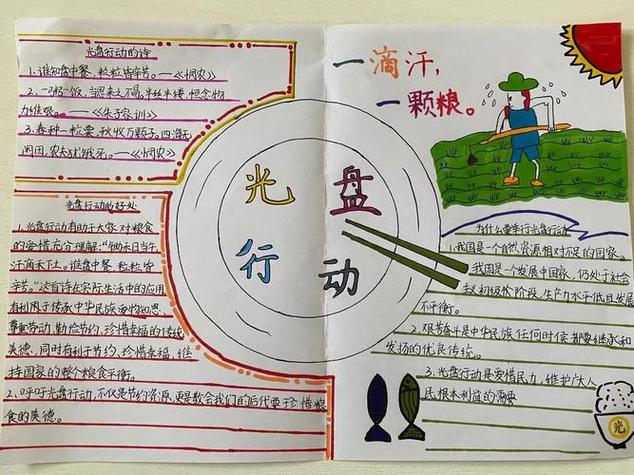 光盘行动的诗
1、谁知盘中餐，粒粒皆辛苦。——《悯农》
2、一粥一饭，当思来之不易。半丝半缕，恒念物
力维艰。——《朱子家训》
3、春种一粒粟，秋收万颗子。四海无
闲田，农夫犹饿死。——《悯农》
光盘行动的好处
1、光盘行动有助于大家对粮食
的爱惜充分理解："锄禾日当午，
汗滴禾下土。谁盘中餐，粒粒皆
辛苦。"这首诗在实际生活中的应用
有利用于传承中华民族
尊重劳动、勤俭节约、珍惜幸福的传统
美德，同时有利于节约、珍惜幸福，维
持国家的整个粮食平衡。
2、呼吁光盘行动，不仅是节约资源，更是教会我们的后代要珍惜粮
食的美德。
一滴汗，
一颗粮。
光盘
行动
为什么要举行光盘行动
1、我国是一个自然资源相对不足的国家。
我国是一个发展中国家，仍处于社会
主义初级阶段，生产水平低且发展
不平衡。
2、艰苦奋斗是中华民族任何时候都要继承和
发扬的优良传统。
3、光盘行动是爱惜民力，维护广大人
民根本利益的需要
光